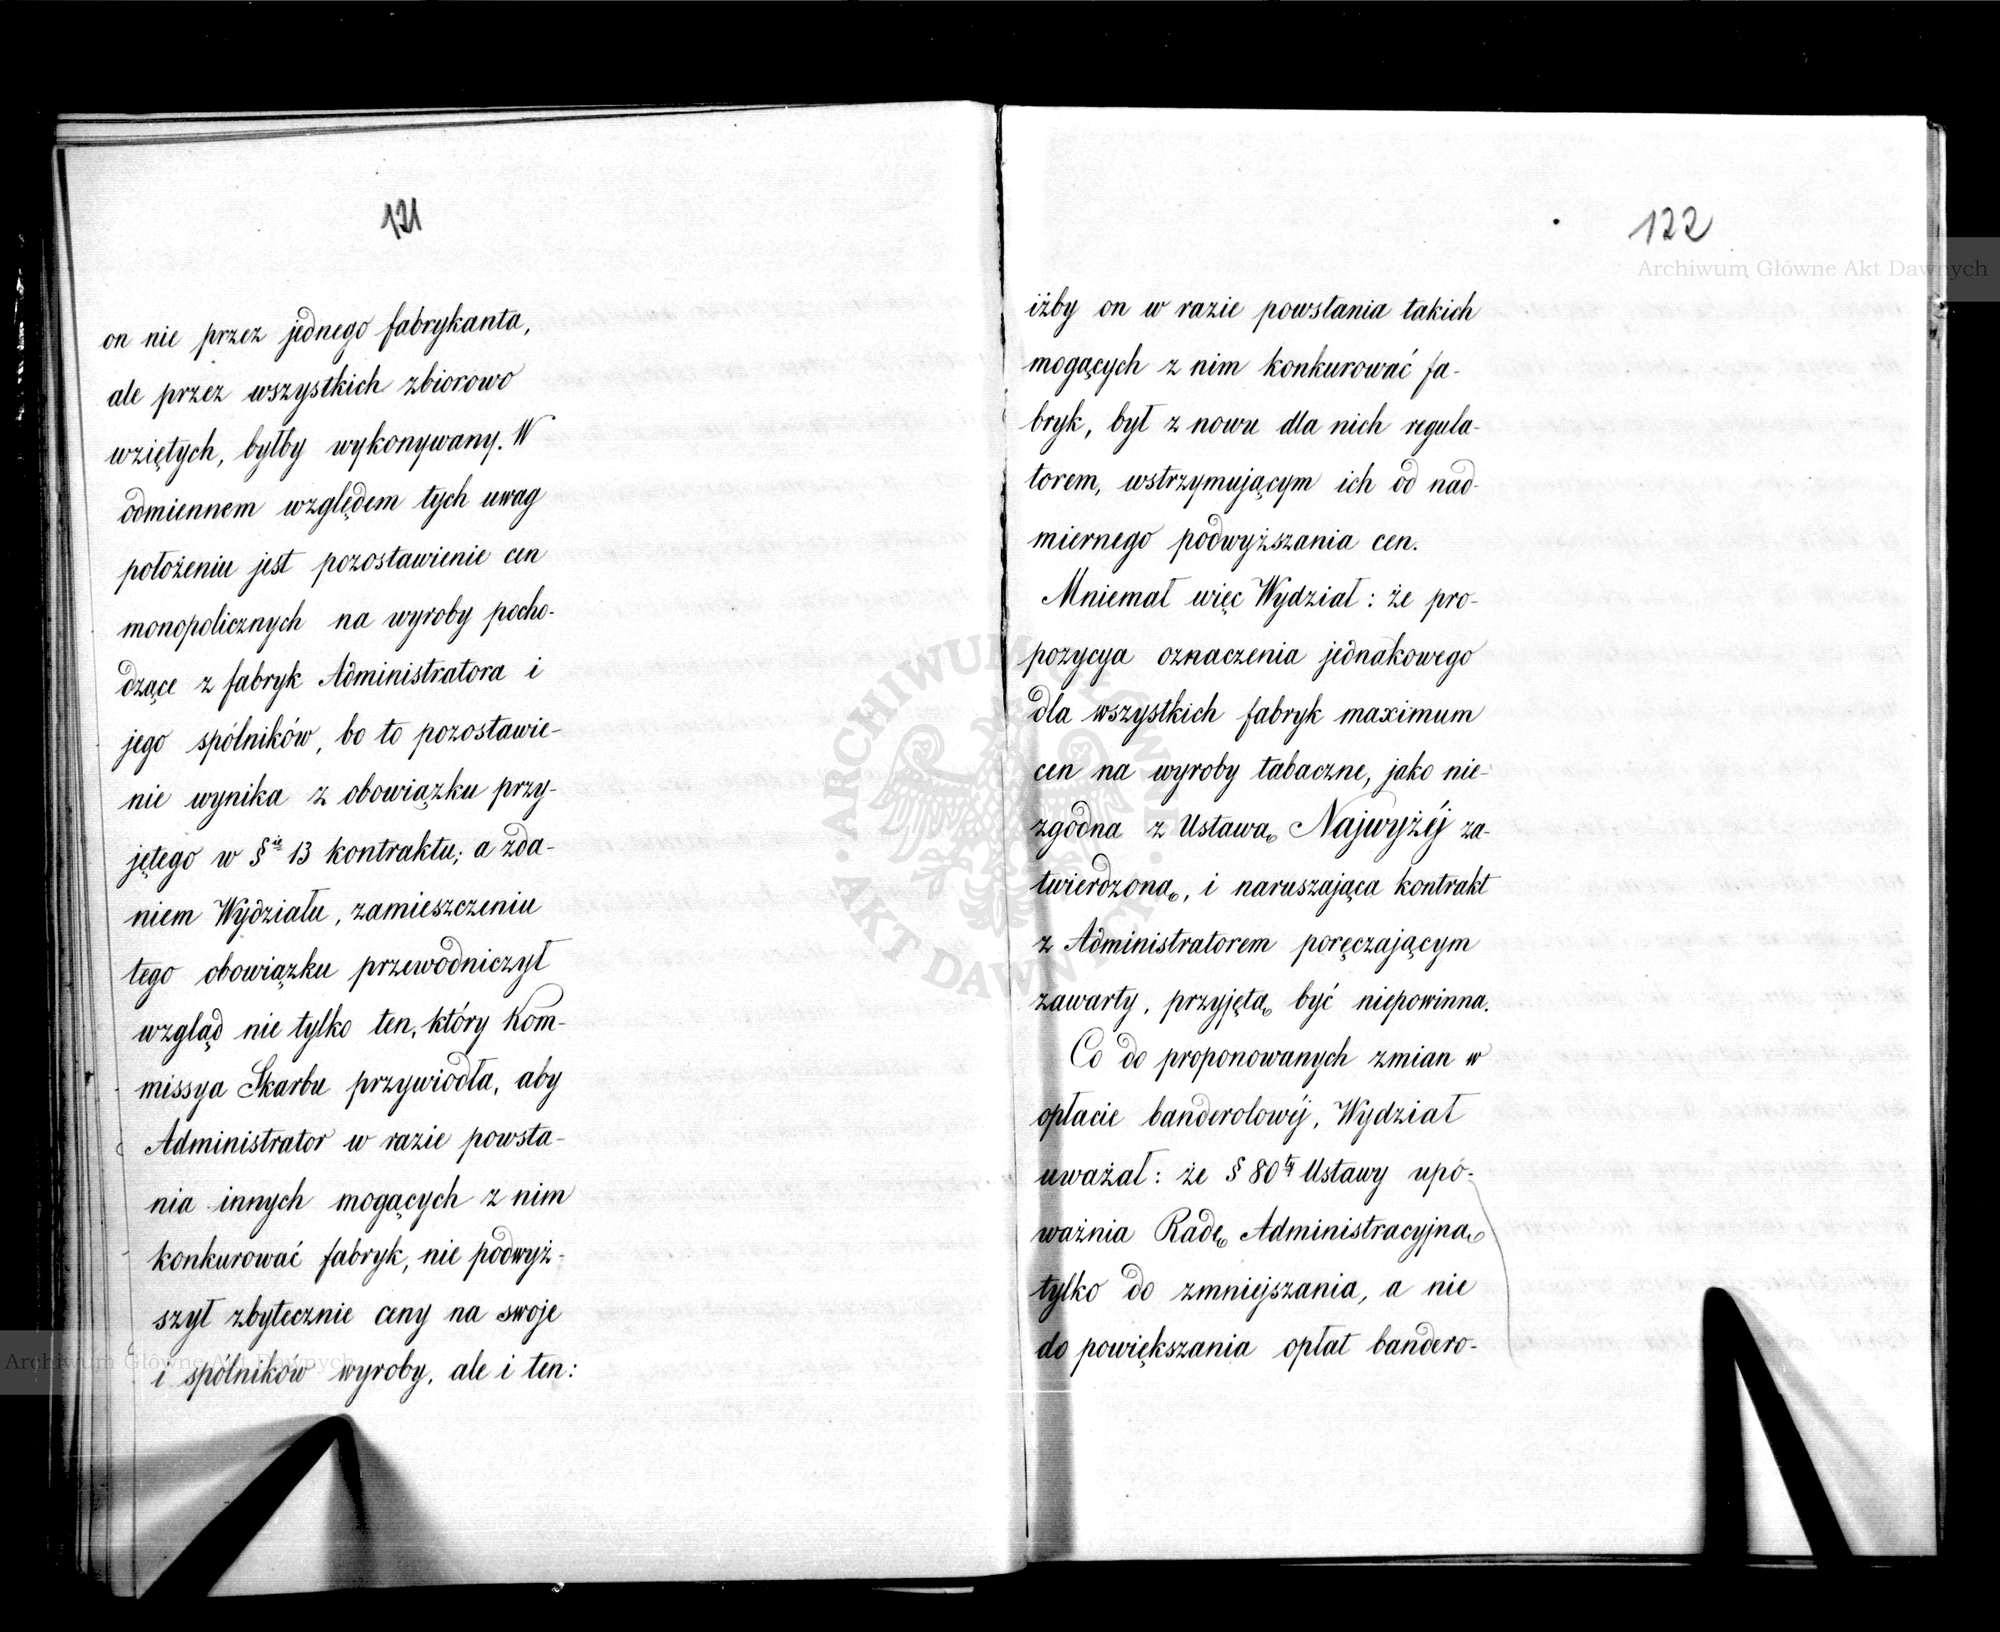 121
on nie przez jednego fabrykanta,
ale przez wszystkich zbiorowo
wziętych, byłby wykonywany. W
odmiennem względem tych uwag
położeniu jest pozostawienie cen
monopolicznych na wyroby pocho-
dzące z fabryk Administratora i
jego spólników, bo to pozostawie-
nie wynika z obowiązku przy-
jętego w § 13 kontraktu; a zda-
niem Wydziału, zamieszczeniu
tego obowiązku przewodniczył
wzgląd nie tylko ten, który Kom-
missya Skarbu przywiodła, aby
Administrator w razie powsta-
nia innych mogących z nim
konkurować fabryk, nie podwyż-
szył zbytecznie ceny na swoje
i spólników wyroby, ale i ten:
122
iżby on w razie powstania takich
mogących z nim konkurować fa-
bryk, był z nowu dla nich regula-
torem, wstrzymującym ich od nad-
miernego podwyższania cen.
Mniemał więc Wydział: że pro-
pozycya oznaczenia jednakowego
dla wszystkich fabryk maximum
cen na wyroby tabaczne, jako nie-
zgodna z Ustawą Najwyżéj za-
twierdzoną, i naruszająca kontrakt
z Administratorem poręczającym
zawarty, przyjętą być niepowinna.
Co do proponowanych zmian w
opłacie banderolowéj, Wydział
uważał: że § 80ty Ustawy upo-
ważnia Radę Administracyjną
tylko do zmniejszania, a nie
do powiększania opłat bandero-
Archiwum Główne Akt Dawnych
Archiwum Główne Akt Dawnych
ARCHIWUM GŁÓWNE
AKT DAWNYCH